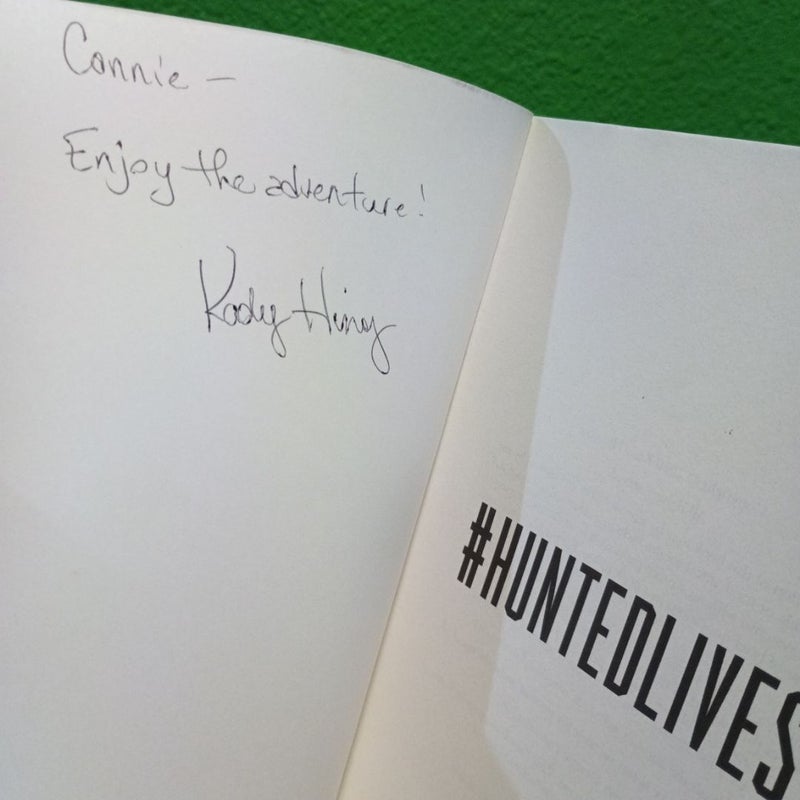 Connie —
Enjoy the adventure!
Kody
#HUNTEDLIVES